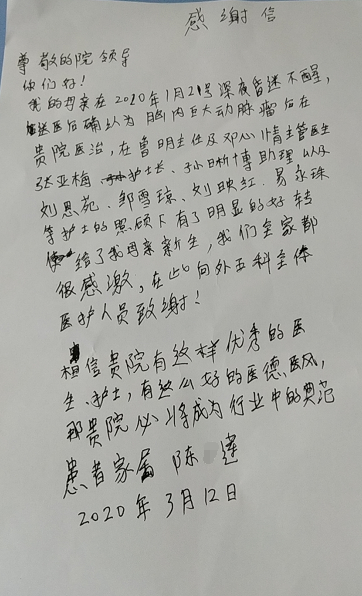 感谢信
尊敬的院领导
你们好!
我的母亲在2020年1月21号深夜昏迷不醒,
送医后确认为脑内巨大动脉瘤后在
贵院医治,在鲁明主任及邓心情主管医生
张亚梅 护士长、孙树博助理以及
刘思苑、邹雪琼、刘映红、易永珠
等护士的照顾下有了明显的好转
给了我母亲新生,我们全家都
很感激,在此向外五科全体
医护人员致谢!
相信贵院有这样优秀的医
生、护士,有这么好的医德医风,
那贵院必将成为行业中的典范
患者家属 陈 達
2020年3月12日